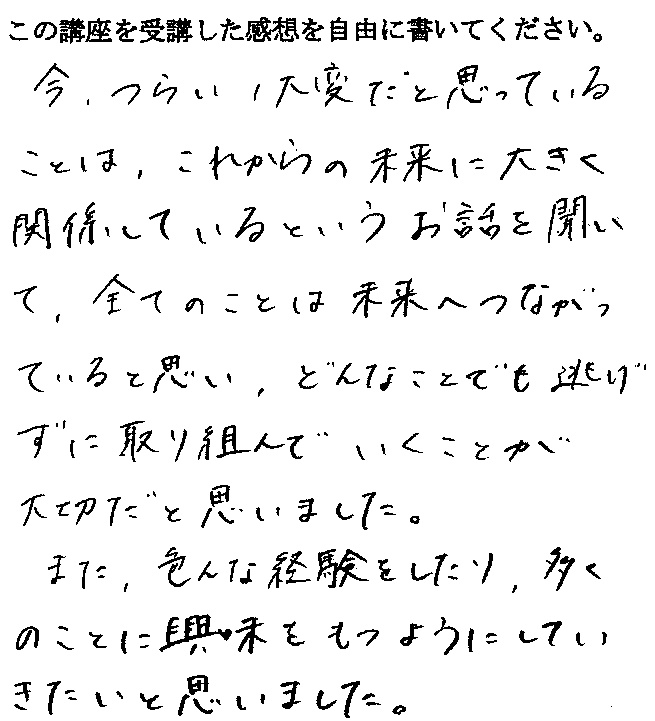 この講座を受講した感想を自由に書いてください。
今、つらい、大変だと思っている
ことは、これからの未来に大きく
関係しているというお話を聞い
て、全てのことは未来へつながっ
ていると思い、どんなことでも逃げ
ずに取り組んでいくことが
大切だと思いました。
また、色んな経験をしたり、多く
のことに興味をもつようにしてい
きたいと思いました。